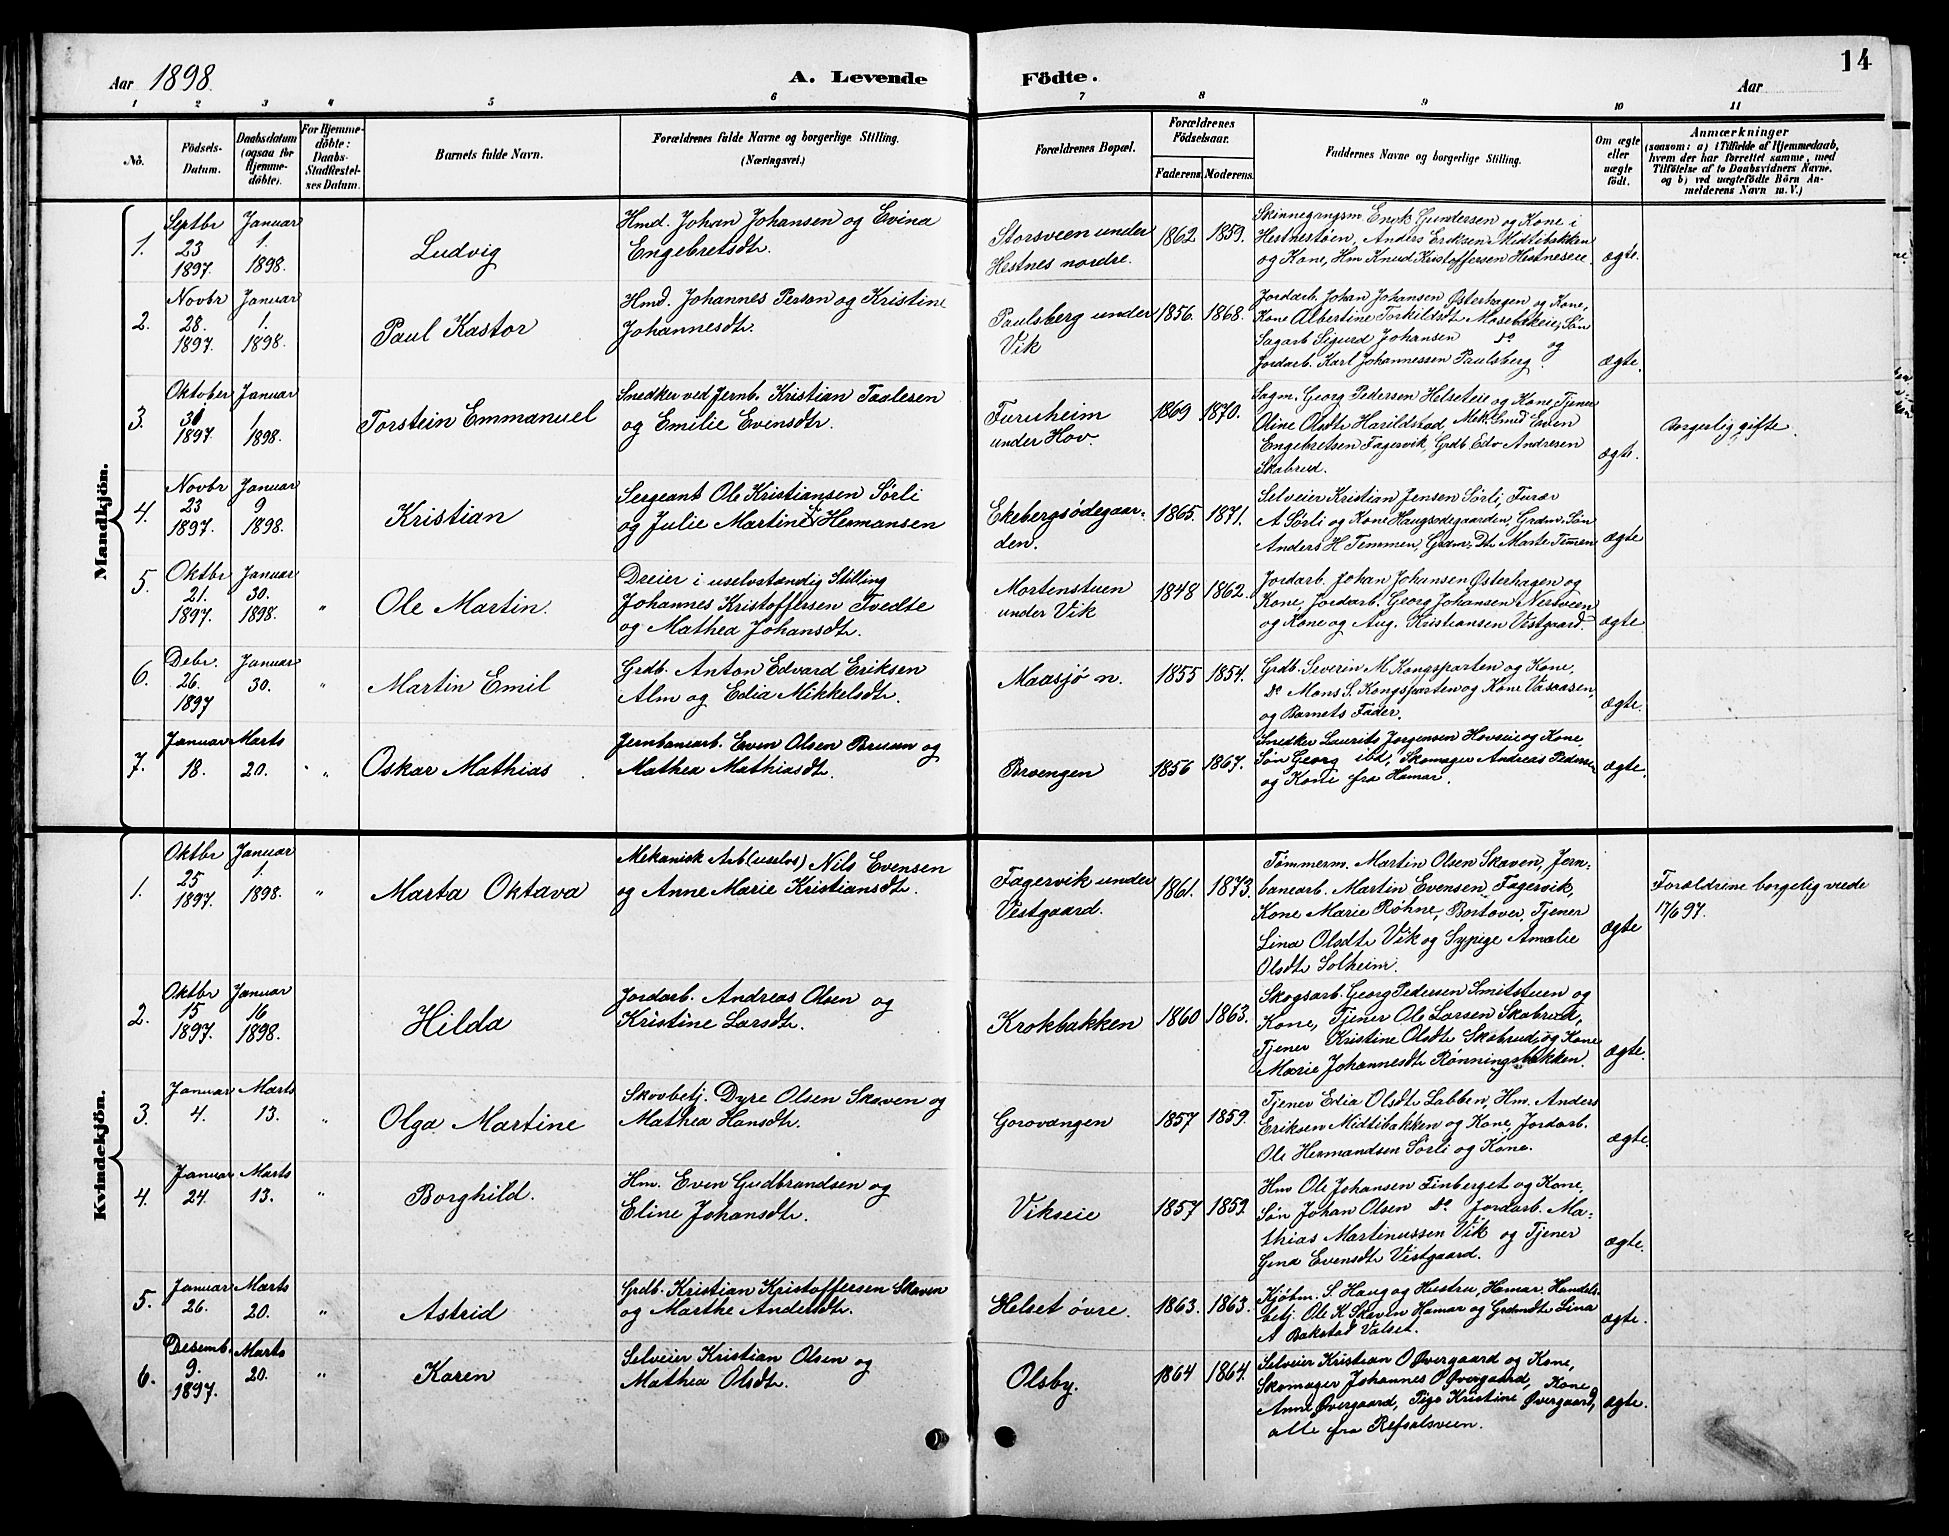 Aar 1898.
A. Levende Födte.
Aar
14
1 2 3 4 5 6 7 8 9 10 11
No.
Födsels-Datum.
Daabsdatum (ogsaa for Hjemme-döbte).
For Hjemme-döbte: Daabs-Stadfæstel-ses Datum.
Barnets fulde Navn.
Forældrenes fulde Navne og borgerlige Stilling.
(Næringsvei.)
Forældrenes Bopæl.
Forældrenes Födselsaar.
Faderens.
Moderens.
Faddernes Navne og borgerlige Stilling.
Om ægte eller uægte födt.
Anmærkninger
(saasom: a) i Tilfælde af Hjemmedaab,
hvem der har forrettet samme, med
Tilföielse af to Daabsvidners Navne,
og b) ved uægtefödte Börn An-
melderens Navn m. V.)
Mandkjön.
1. Septbr 23 1897. Januar 1. 1898.
Ludvig
Hmd. Johan Johansen og Evina
Engebretsdtr.
Storsveen under
Hestnes nordre.
1862 1859.
Skinnegangsm Enok Gundersen og Kone i
Hestnestøen, Anders Eriksen Midtibakken
og Kone, Hm Knud Kristoffersen Hestneseie.
ægte.
2. Novbr 28. 1897. Januar 1. 1898.
Paul Kastor
Hmd. Johannes Person og Kristine
Johannesdtr.
Paulsberg under
Vik
1856. 1868.
Jordarb. Johan Johansen Østerhagen og Kone,
Kone Albertine Torkildsdtr Mosebækeie, Søn
Sagarb Sigurd Johansen do og
Jordarb. Karl Johannessen Paulsberg.
ægte.
3. Oktober 30 1897. Januar 1 1898.
Torstein Emmanuel
Snedker ved Jernb. Kristian Taalesen
og Emilie Evensdtr.
Furuheim
under Hov.
1869 1870.
Sagm. Georg Pedersen Helseteie og Kone, Tjener
Oline Olsdtr Harildstad, Mek. Smed Even
Engebretsen Fagervik, Grdb. Edv Andresen
Skabrud.
ægte.
Borgerlig gifte.
4. Novbr 23 1897. Januar 9 1898.
Kristian
Sergeant Ole Kristiansen Sørli
og Julie Martine Hermansen
Ekebergsødegaar-
den.
1865. 1871.
Selveier Kristian Jensen Sørli, Furer
A Sørli og Kone Haugsødegaarden, Grdm. Søn
Anders H Temmen, Grdm. Dtr Marte Temmen
ægte
5. Oktbr 21. 1897. Januar 30. 1898. "
Ole Martin.
Dreier i uselvstændig Stilling
Johannes Kristoffersen Tvedte
og Mathea Johansdtr.
Mortenstuen
under Vik
1848 1862.
Jordarb. Johan Johansen Østerhagen og
Kone, Jordarb. Georg Johansen Nersveen
og Kone og Aug. Kristiansen Vestgaard.
ægte
6. Debr. 26. 1897 Januar 30. "
Martin Emil
Grdb. Anton Edvard Eriksen
Alm og Edia Mikkelsdtr.
Maasjø n.
1855 1854.
Grdb. Severin M. Kongsparten og Kone,
do Mons S. Kongsparten og Kone Vasaasen,
og Barnets Fader.
ægte.
7. Januar 18. Marts 20. "
Oskar Mathias
Jernbanearb. Even Olsen Bruun og
Mathea Mathiasdtr.
Brvengen
1856 1867.
Snedker Laurits Jørgensen Hovseie og Kone,
Søn Georg ibd, Skomager Andreas Pedersen
og Kone fra Hamar.
ægte.
Kvindekjön.
1. Oktbr 25 1897. Januar 1. 1898. "
Marta Oktava
Mekanisk Arb (uselvs) Nils Evensen
og Anne Marie Kristiansdtr.
Fagervik under
Vestgaard.
1861. 1873.
Tømmerm. Martin Olsen Skaven, Jern-
banearb. Martin Evensen Fagervik,
Kone Marie Røhne, Tjener
Lina Olsdtr Vik og Sypige Amalie
Olsdtr Solheim.
ægte
Forældrene borgelig viede
17/6 97.
2. Oktbr 15 1897. Januar 16 1898.
Hilda
Jordarb. Andreas Olsen og
Kristine Larsdtr.
Krokbakken
1860 1863.
Skogsarb. Georg Pedersen Smitstuen og
Kone, Tjener Ole Larsen Skabrud,
Tjener Kristine Olsdtr Skabrud, og Kone
Marie Johannesdtr Rønningsbakken.
ægte.
3. Januar 4. Marts 13. "
Olga Martine
Skovbetj. Dyre Olsen Skaven og
Mathea Hansdtr.
Gorovangen
1857 1859.
Tjener Edia Olsdtr Labben, Hm. Anders
Eriksen Midtibakken og Kone, Jordarb.
Ole Hermandsen Sørli og Kone.
ægte
4. Januar 24. Marts 13. "
Borghild.
Hm. Even Gudbrandsen og
Eline Johansdtr.
Vikseie
1857 1859.
Hm Ole Johansen Finberget og Kone,
Søn Johan Olsen do Jordarb. Ma-
thias Martinussen Vik og Tjener
Gina Evensdtr Vestgaard.
ægte.
5. Januar 26. Marts 20. "
Astrid
Grdb. Kristian Kristoffersen Skaven
og Marthe Andersdtr.
Helset øvre.
1863. 1863.
Kjøbm. S. Haug og Hustru, Hamar, Handels-
betj. Ole K. Skaven Hamar og Grdmdtr Lina
A Bakstad Valset.
ægte.
6. Desemb. 9. 1897. Marts 20. "
Karen
Selveier Kristian Olsen og
Mathea Olsdtr.
Olsby.
1864 1864.
Selveier Kristian O Øvergaard og Kone,
Skomager Johannes O Øvergaard, Kone
Anne Øvergaard, Pige Kristine Øvergaard,
alle fra Refsalsveen.
ægte.